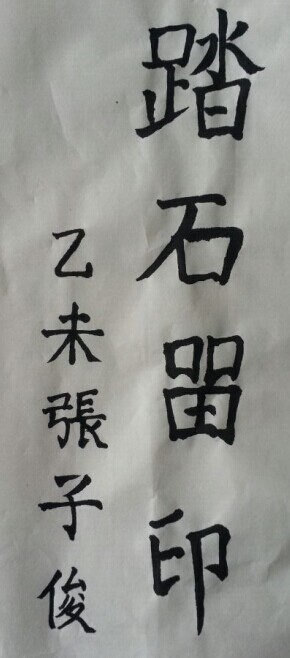 踏石留印
乙未張子俊